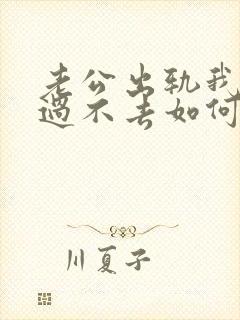 老公出轨我
过不去如何
川夏子